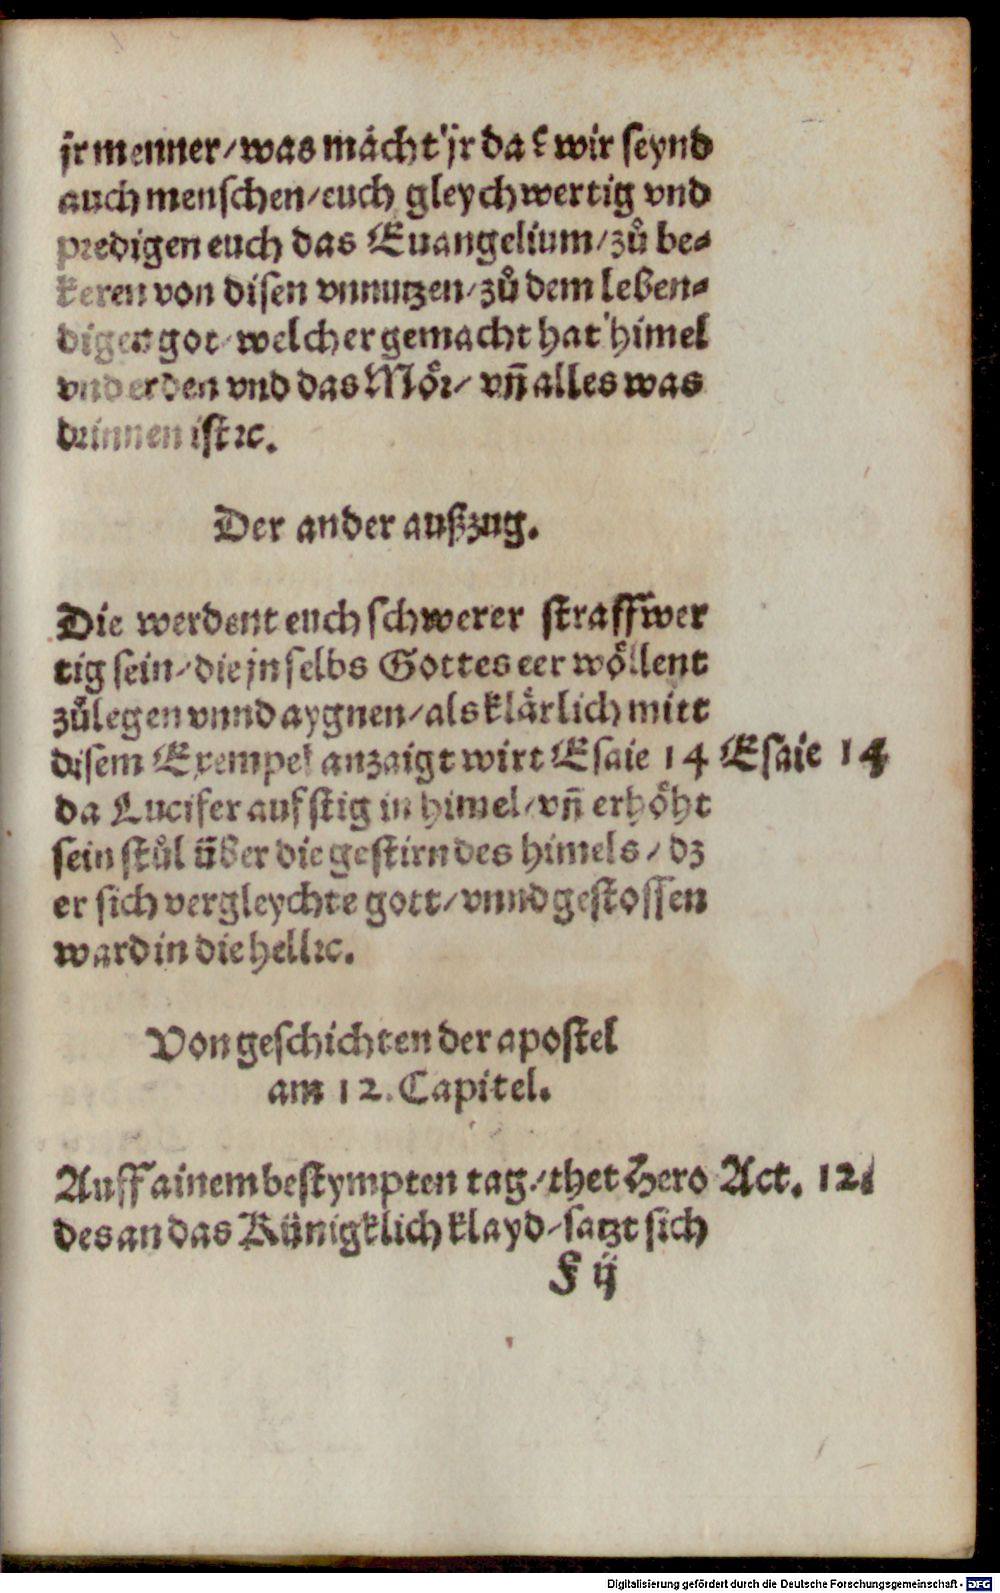 jr menner/was mächt jr da? wir seynd
auch menschen/euch gleych wertig vnd
predigen euch das Euangelium/zů be⸗
keren von disen vnnutzen/zů dem leben⸗
digen got/welcher gemacht hat himel
vnd erden vnd das Mör/vñ alles was
drinnen ist ꝛc.
Der ander außzug.
Die werdent euch schwerer straffwer
tig sein/die jn selbs Gottes eer wöllent
zůlegen vnnd aygnen/als klärlich mitt
disem Exempel anzaigt wirt Esaie 14
Esaie 14
da Lucifer auf stig in himel/vñ erhöht
sein stůl über die gestirn des himels/dz
er sich vergleychte gott/vnnd gestossen
ward in die hell ꝛc.
Von geschichten der apostel
am 12. Capitel.
Auff ainem bestympten tag/thet Hero
Act. 12.
des an das Künigklich klayd/satzt sich
F ij
Digitalisierung gefördert durch die Deutsche Forschungsgemeinschaft - DFG